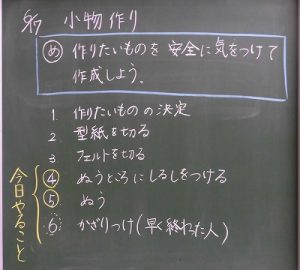 9/7 小物作り
め 作りたいものを 安全に気をつけて
作成しよう。
1. 作りたいものの決定
2. 型紙を切る
3. フェルトを切る
④ ぬうところにしるしをつける
⑤ ぬう
⑥ かざりつけ(早く終わった人)
今日やること